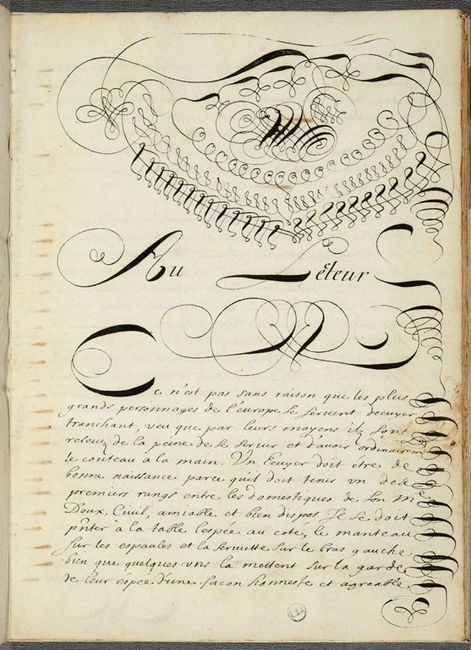 Au Lēteur
Ce n'est pas sans raison que les plus
grands personnages de l'europe se servent decuyer
tranchant, veu que par leurs moyens ils sont
relevez de la peine de se servir et d'avoir ordinairemt
le couteau à la main. Un Ecuyer doit etre de
bonne naissance parce quil doit tenir un des
premiers rangs entre les domestiques de son Me
Doux, Civil, amiable et bien dispos Il se doit
pñter à la table l'espée au coté, le manteau
sur les espaules et la serviette sur le bras gauche
bien que quelques uns la mettent sur la garde
de leur espée d'une façon honneste et agreable